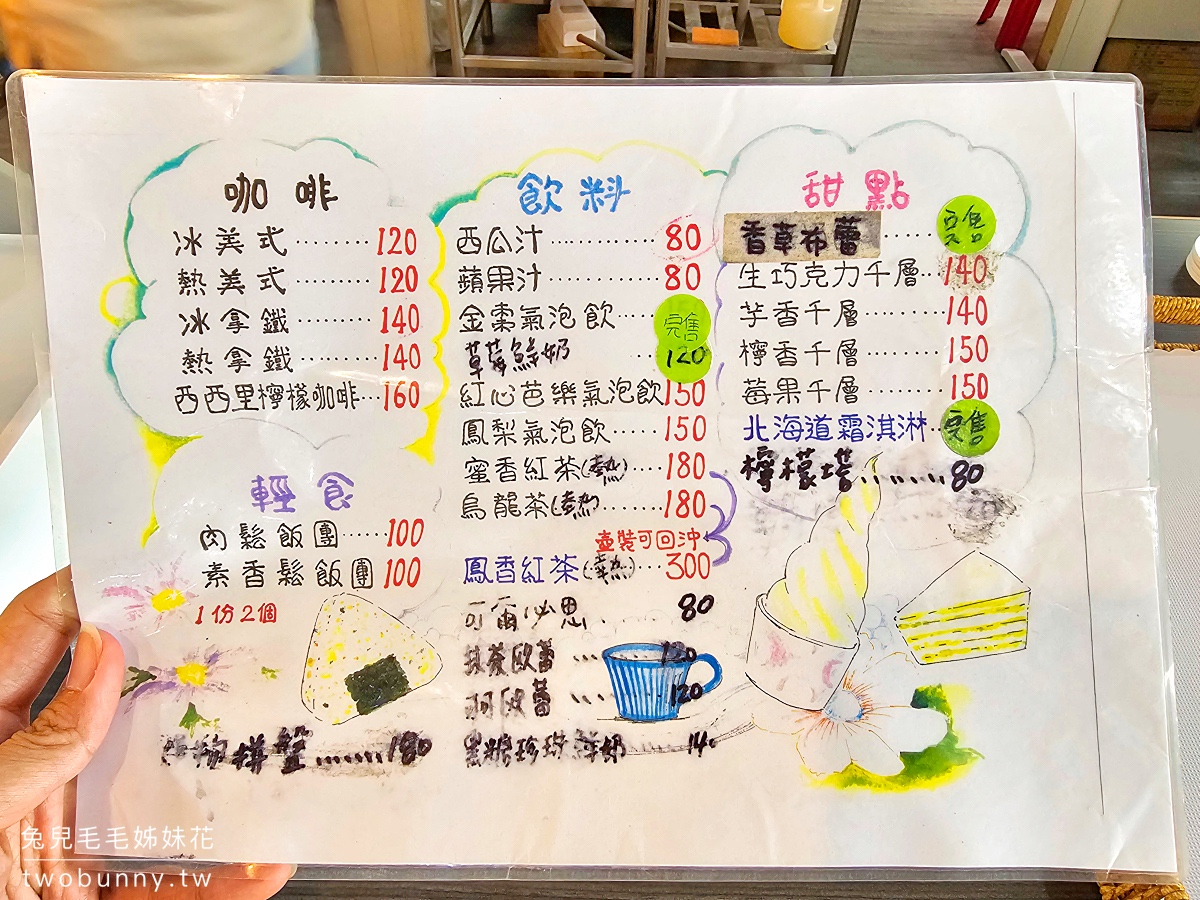 咖啡
冰美式………120
熱美式………120
冰拿鐵………140
熱拿鐵………140
西西里檸檬咖啡…160
輕食
肉鬆飯團……100
素香鬆飯團100
1份2個
拼盤……180
飲料
西瓜汁…………80
蘋果汁…………80
金棗氣泡飲……完售
草莓鮮奶 …120
紅心芭樂氣泡飲150
鳳梨氣泡飲……150
蜜香紅茶(熱)…180
烏龍茶(熱)……180
壺裝可回沖
鳳香紅茶(熱)…300
可爾必思…80
抹茶歐蕾……120
可可歐蕾……120
黑糖珍珠鮮奶 14
甜點
香草布蕾……完售
生巧克力千層…140
芋香千層………140
檸香千層………150
莓果千層………150
北海道霜淇淋…完售
檸檬塔………80
兔兒毛毛姊妹花
twobunny.tw